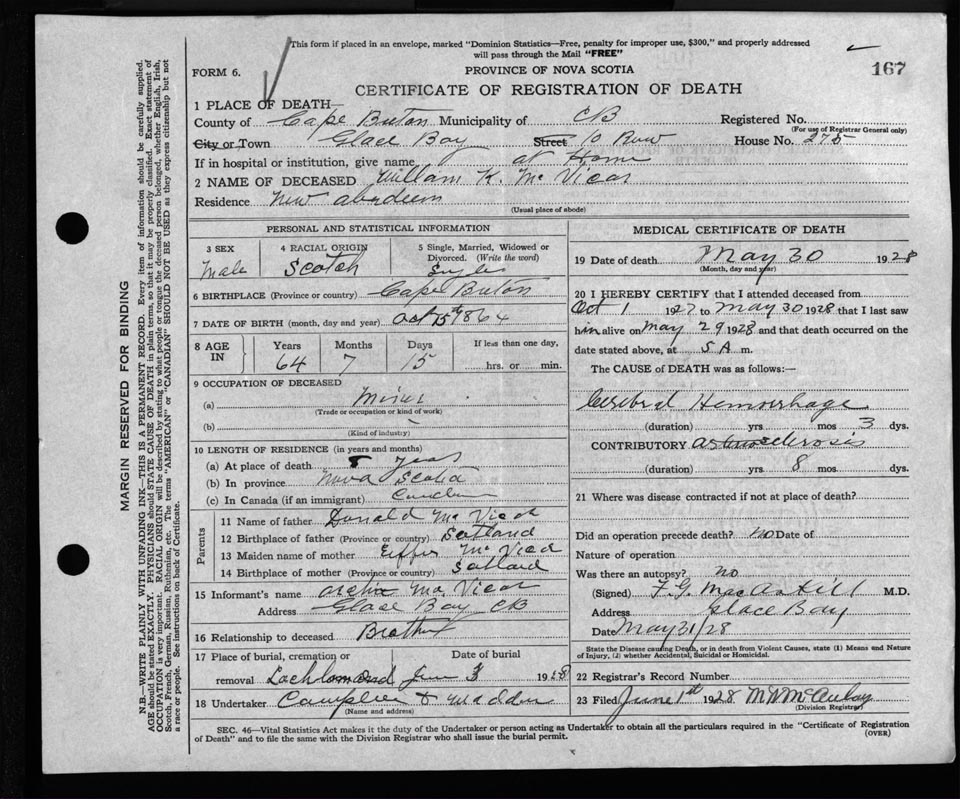 This form if placed in an envelope, marked "Dominion Statistics—Free, penalty for improper use, $300," and properly addressed
will pass through the Mail "FREE"
FORM 6.
PROVINCE OF NOVA SCOTIA
167
CERTIFICATE OF REGISTRATION OF DEATH
1 PLACE OF DEATH—
County of Cape Breton Municipality of CB Registered No.
(For use of Registrar General only)
City or Town Glace Bay Street 10 Row House No. 275
If in hospital or institution, give name at Home
2 NAME OF DECEASED William K. McVicar
Residence New Aberdeen
(Usual place of abode)
PERSONAL AND STATISTICAL INFORMATION
3 SEX
Male
4 RACIAL ORIGIN
Scotch
5 Single, Married, Widowed or
Divorced. (Write the word)
Single
6 BIRTHPLACE (Province or country) Cape Breton
7 DATE OF BIRTH (month, day and year) Oct 15th 1864
8 AGE IN
Years Months Days If less than one day,
64 7 15 hrs. or min.
9 OCCUPATION OF DECEASED
(a) Miner
(Trade or occupation or kind of work)
(b)
(Kind of industry)
10 LENGTH OF RESIDENCE (in years and months)
(a) At place of death Years
(b) In province Nova Scotia
(c) In Canada (if an immigrant)
Parents
11 Name of father Donald McVicar
12 Birthplace of father (Province or country) Scotland
13 Maiden name of mother Effie McVicar
14 Birthplace of mother (Province or country) Scotland
15 Informant's name Archie McVicar
Address Glace Bay CB
16 Relationship to deceased Brother
17 Place of burial, cremation or Date of burial
removal Lochlomond June 1928
18 Undertaker &
(Name and address)
MEDICAL CERTIFICATE OF DEATH
19 Date of death May 30 1928
(Month, day and year)
20 I HEREBY CERTIFY that I attended deceased from
Oct 1 1927 to May 30 1928 that I last saw
him alive on May 29 1928 and that death occurred on the
date stated above, at 5 A m.
The CAUSE of DEATH was as follows:—
Cerebral Hemorrhage
(duration) yrs mos 3 dys.
CONTRIBUTORY
(duration) yrs 8 mos dys.
21 Where was disease contracted if not at place of death?
Did an operation precede death? No Date of
Nature of operation
Was there an autopsy? no
(Signed) M.D.
Address Glace Bay
Date May 31/28
State the Disease causing Death, or in death from Violent Causes, state (1) Means and Nature
of Injury, (2) whether Accidental, Suicidal or Homicidal.
22 Registrar's Record Number
23 Filed June 1st 1928
(Division Registrar)
SEC. 46—Vital Statistics Act makes it the duty of the Undertaker or person acting as Undertaker to obtain all the particulars required in the "Certificate of Registration
of Death" and to file the same with the Division Registrar who shall issue the burial permit.
(OVER)
MARGIN RESERVED FOR BINDING
N.B.—WRITE PLAINLY WITH UNFADING INK—THIS IS A PERMANENT RECORD. Every item of information should be carefully supplied.
AGE should be stated EXACTLY. PHYSICIANS should STATE CAUSE OF DEATH in plain terms, so that it may be properly classified. Exact statement of
OCCUPATION is very important. RACIAL ORIGIN will be described by stating to what people or tongue the deceased person belonged, whether English, Irish,
Scotch, French, German, Russian, Ruthenian, etc. The terms "AMERICAN" or "CANADIAN" SHOULD NOT BE USED as they express citizenship but not
a race or people. See instructions on back of Certificate.